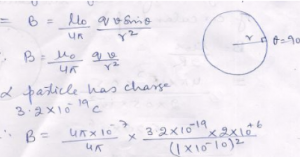 ∴ B = μ₀/4π qv sinθ/r²
∴ B = μ₀/4π qv/r²
r θ=90
α particle has charge
3.2×10⁻¹⁹C
∴ B = 4π×10⁻⁷/4π × 3.2×10⁻¹⁹×2×10⁺⁶/(1×10⁻¹⁰)²